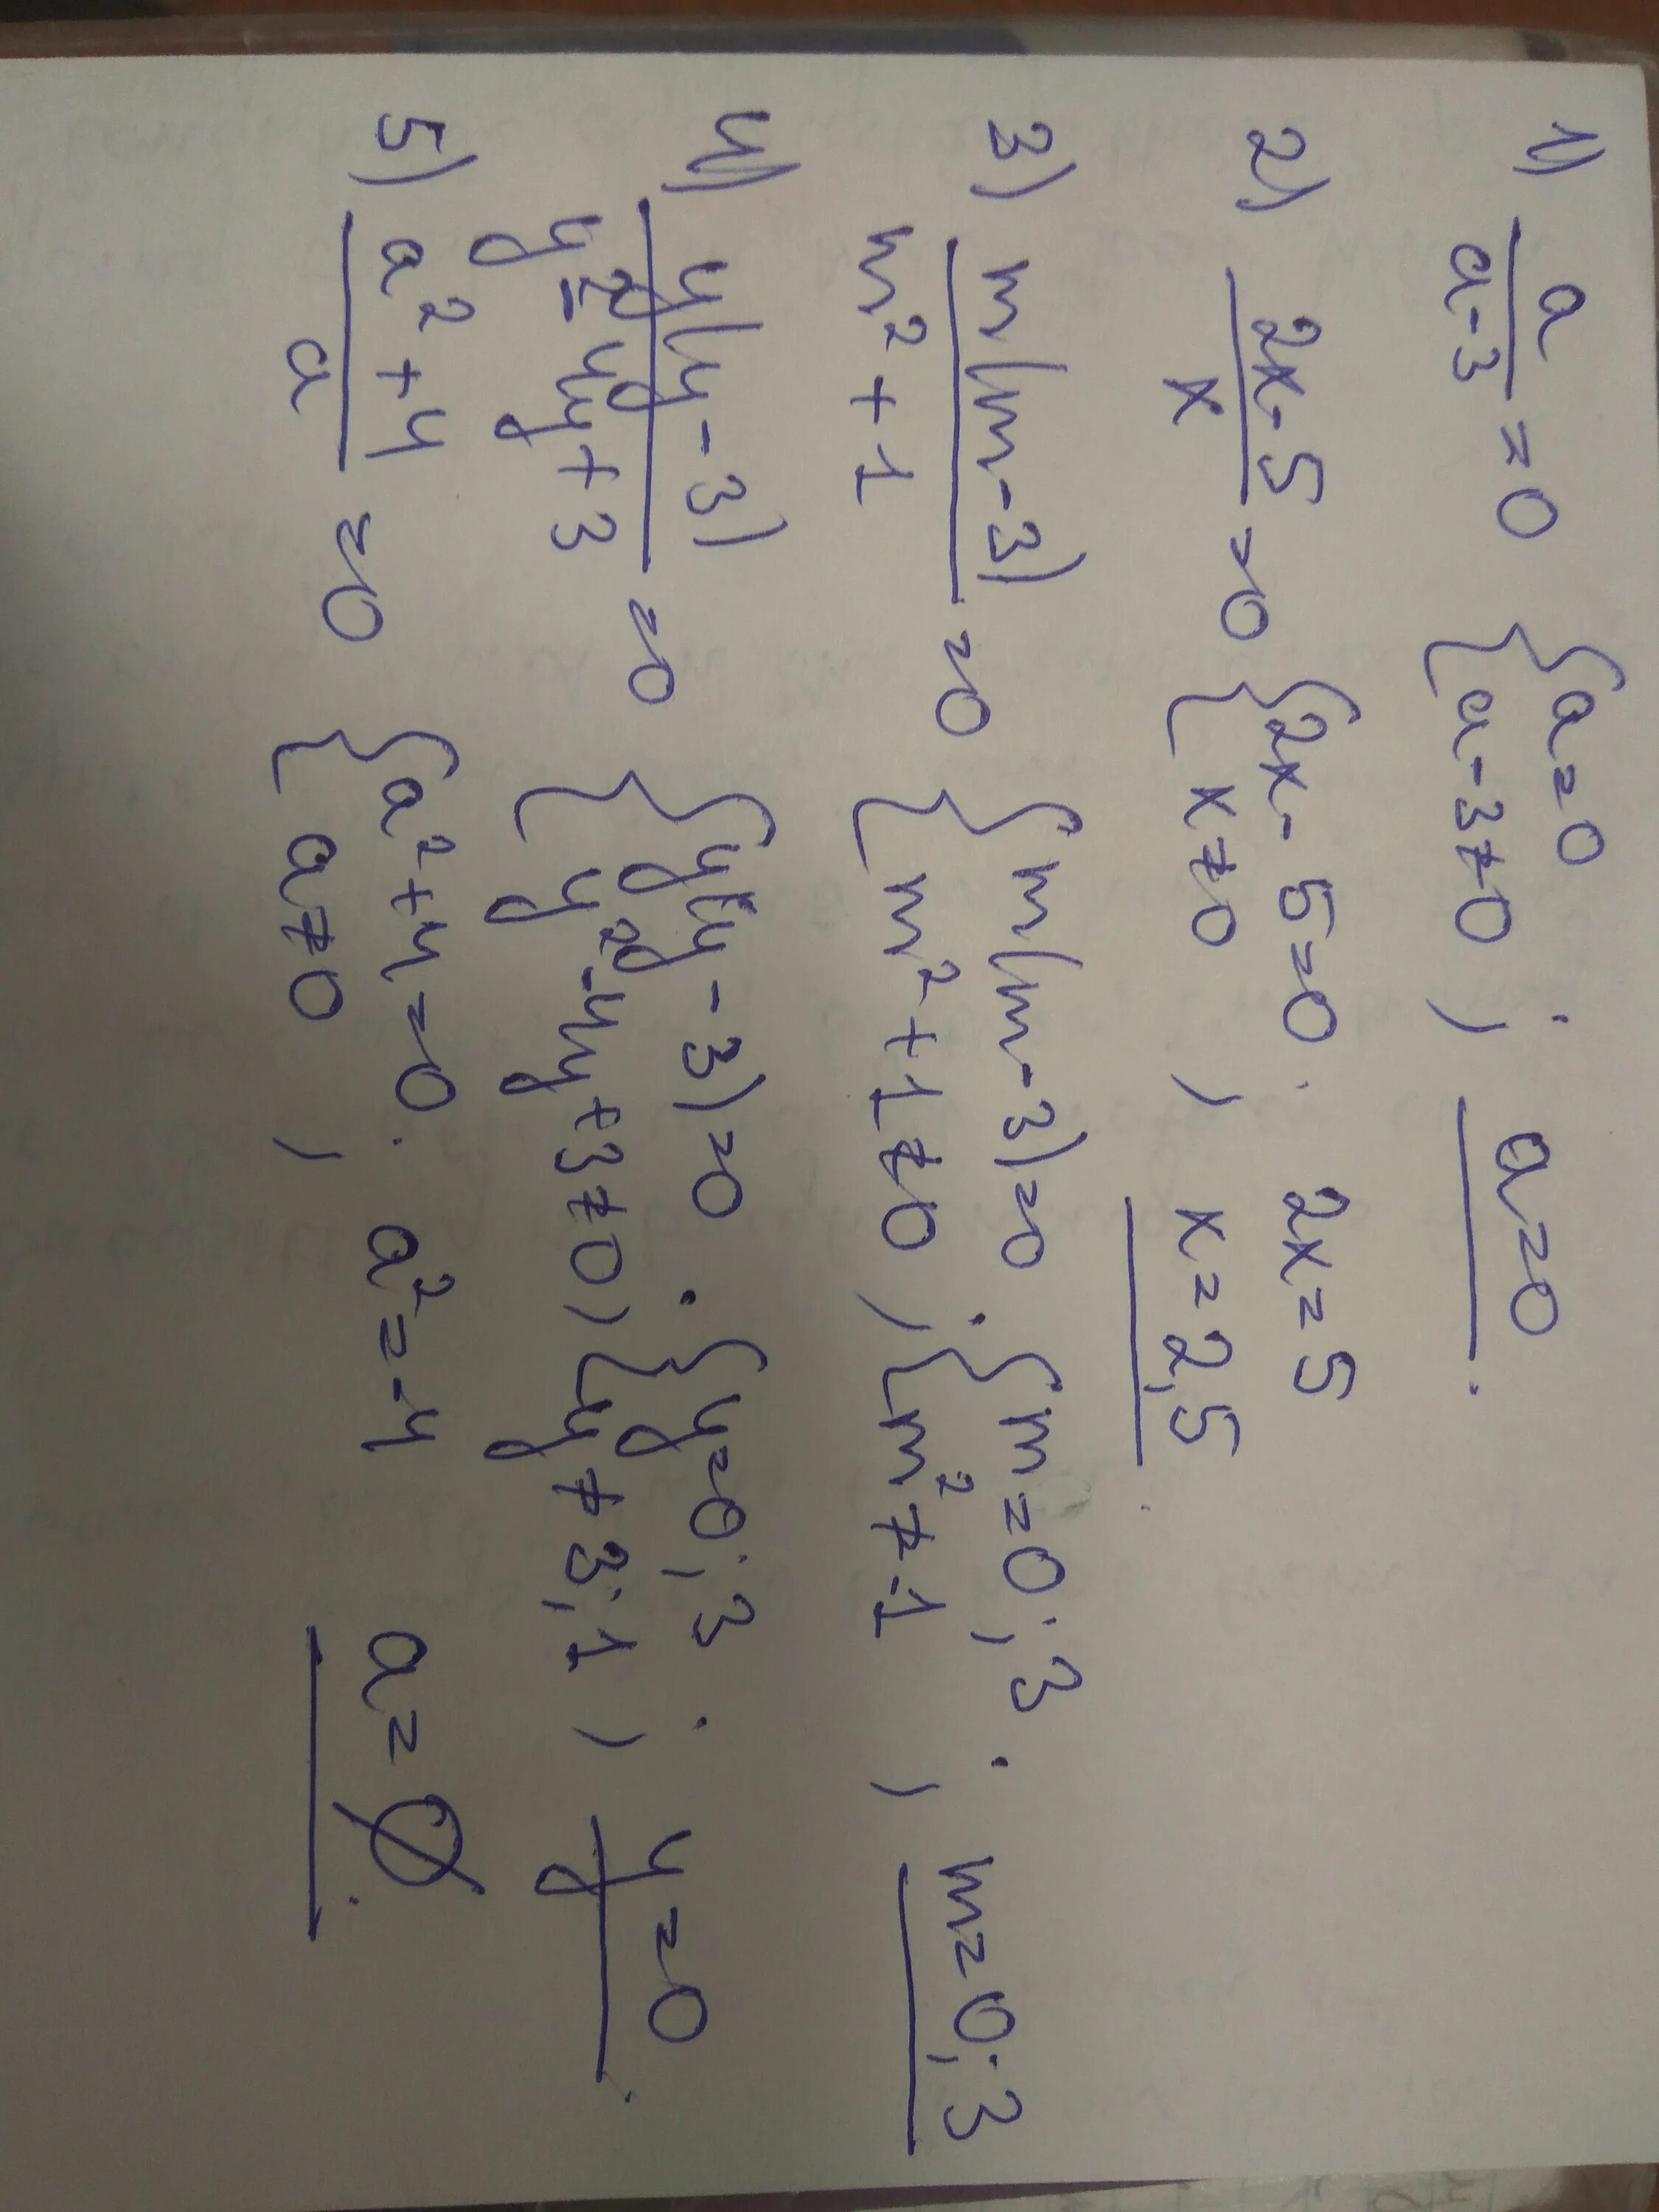 1) a/(a-3) = 0 {a=0 {a-3≠0 ; a=0.
2) (2x-5)/x = 0 {2x-5=0 {x≠0 ; 2x=5 x=2,5.
3) m(m-3)/(m²+1) = 0 {m(m-3)=0 {m²+1≠0 ; {m=0;3 {m²≠-1 ; m=0;3
4) y(y-3)/(y²-4y+3) = 0 {y(y-3)=0 {y²-4y+3≠0 ; {y=0;3 {y≠3;1 ; y=0.
5) (a²+4)/a = 0 {a²+4=0 {a≠0 ; a²=-4 a=∅.